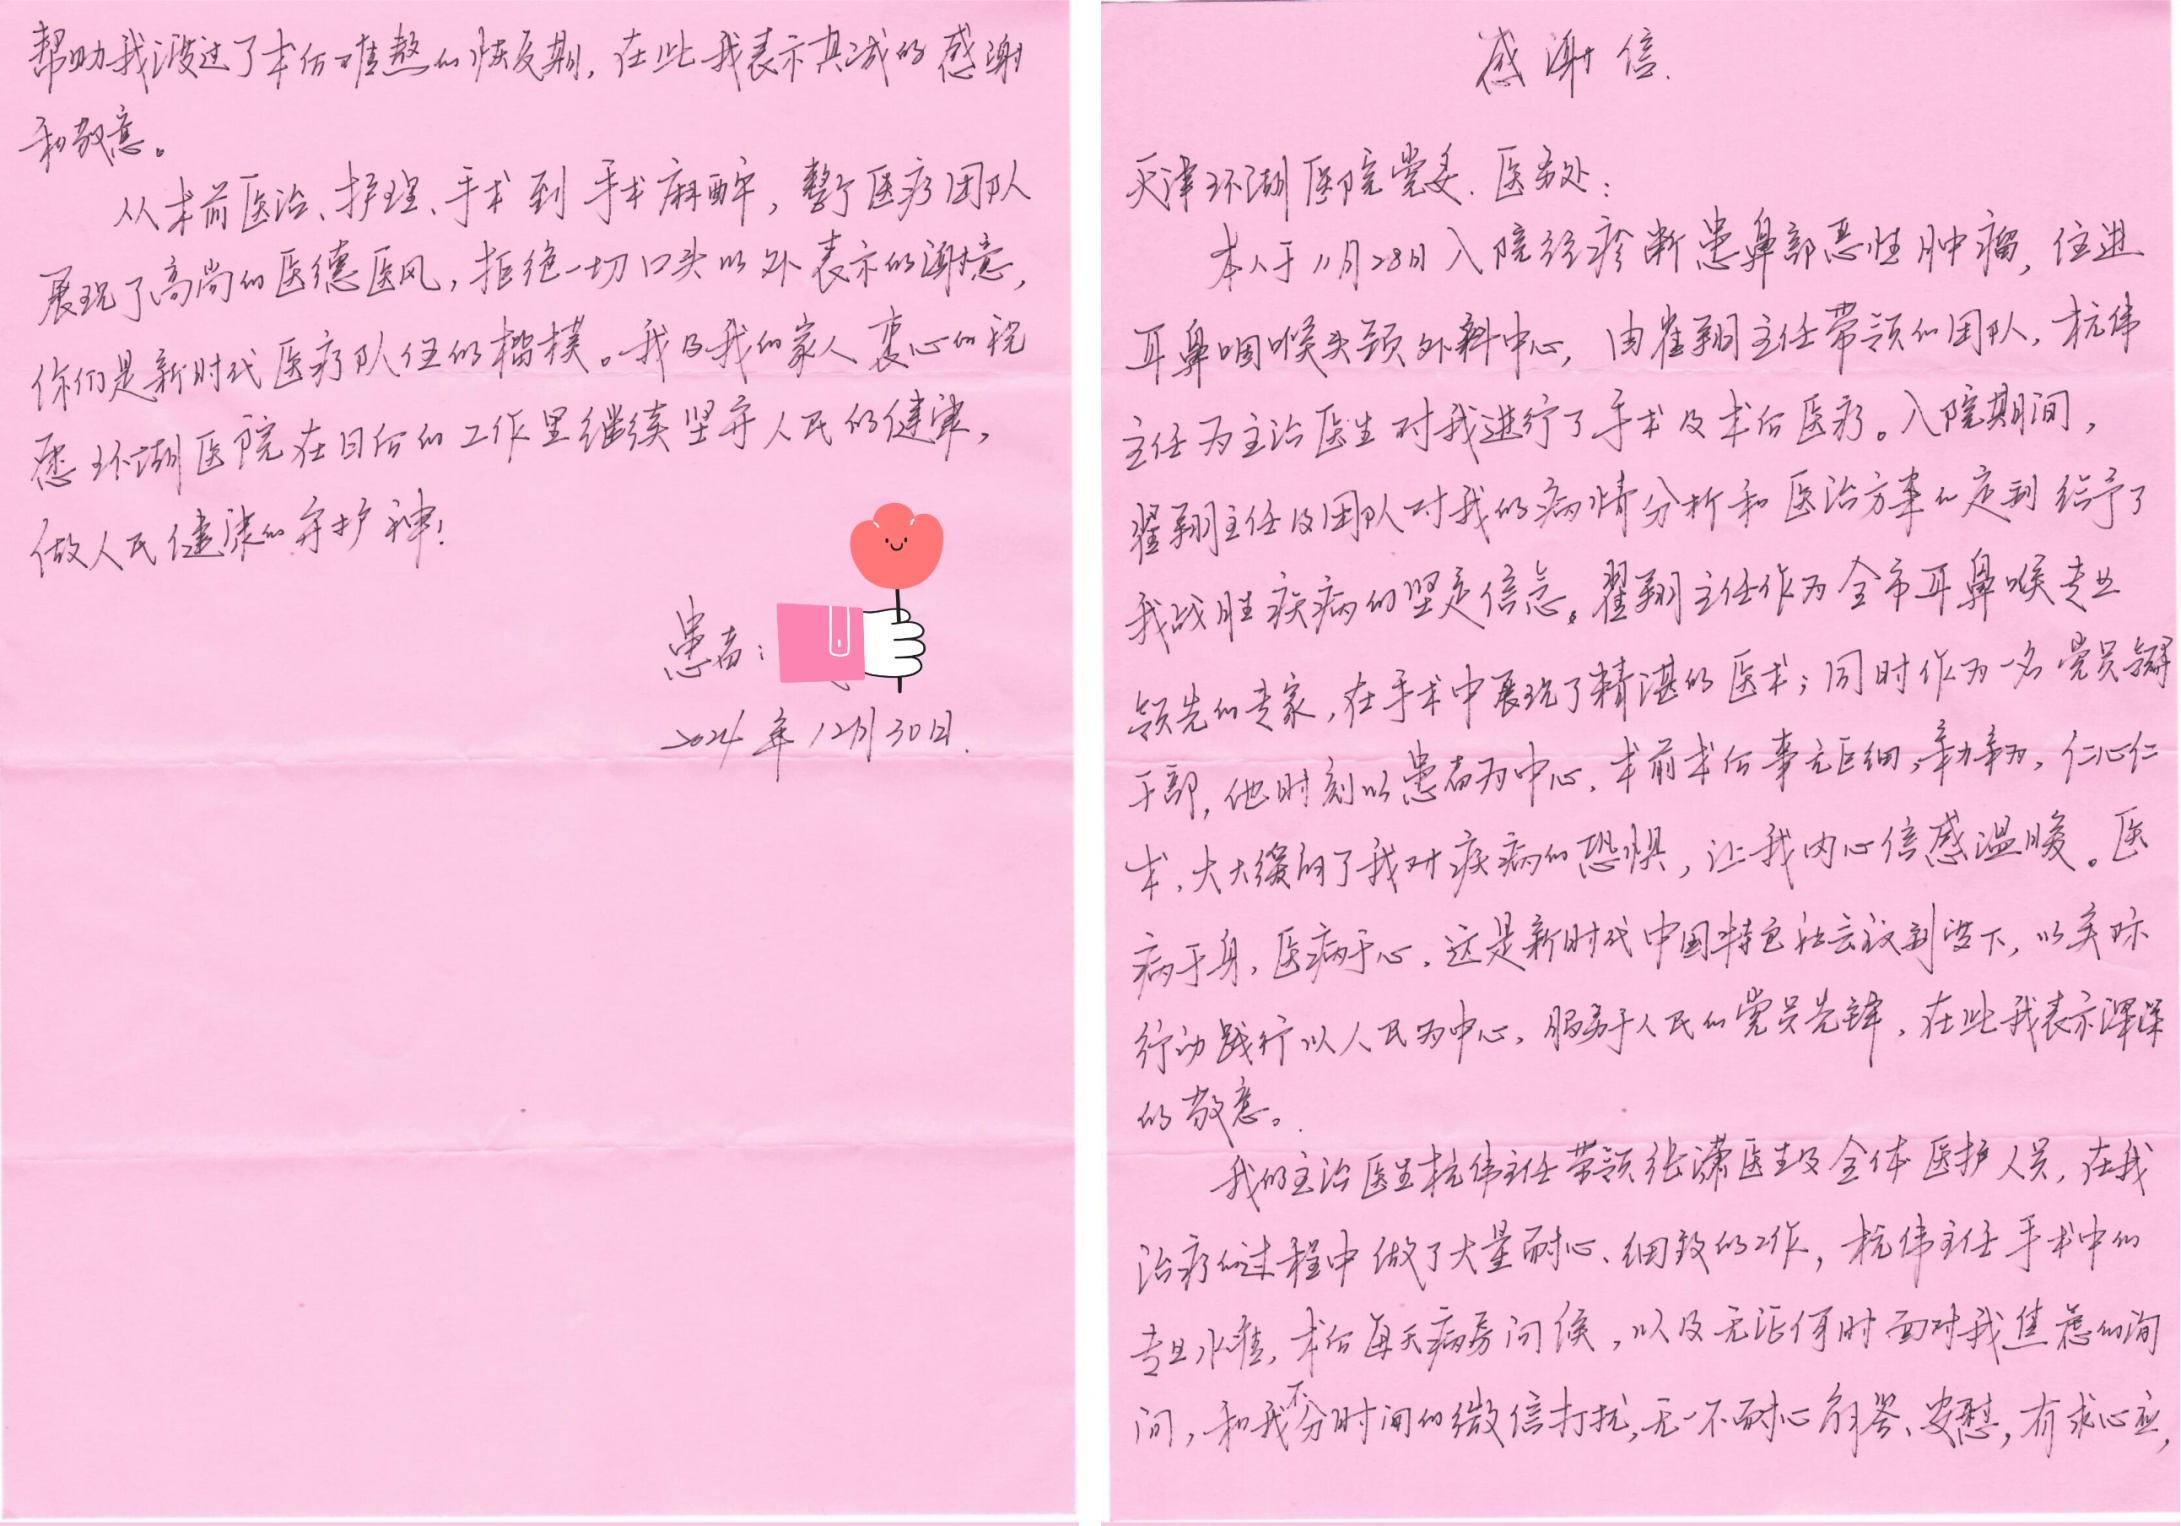 感谢信.
天津环湖医院党委、医务处：
本人于11月28日入院经诊断患鼻部恶性肿瘤，住进
耳鼻咽喉头颈外科中心，由翟翔主任带领的团队，杭伟
主任为主治医生对我进行了手术及术后医疗。入院期间，
翟翔主任及团队对我的病情分析和医治方案的定制给予了
我战胜疾病的坚定信念。翟翔主任作为全市耳鼻喉专业
领先的专家，在手术中展现了精湛的医术；同时作为一名党员领导
干部，他时刻以患者为中心，术前术后事无巨细，亲力亲为，仁心仁
术，大大缓解了我对疾病的恐惧，让我内心倍感温暖。医
病于身，医病于心，这是新时代中国特色社会议制度下，以实际
行动践行以人民为中心，服务于人民的党员先锋，在此我表示深深
的敬意。
我的主治医生杭伟主任带领张潇医生及全体医护人员，在我
治疗的过程中做了大量耐心、细致的工作，杭伟主任手术中的
专业水准，术后每天病房问侯，以及无论何时面对我焦虑的询
问，和我不分时间的微信打扰，无一不耐心解答、安慰，有求必应，
帮助我渡过了术后难熬的恢复期，在此我表示真诚的感谢
和敬意。
从术前医治、护理、手术到手术麻醉，整个医疗团队
展现了高尚的医德医风，拒绝一切口头以外表示的谢意，
你们是新时代医疗队伍的楷模。我及我的家人衷心的祝
愿环湖医院在日后的工作里继续坚守人民的健康，
做人民健康的守护神！
患者：
2024年12月30日.